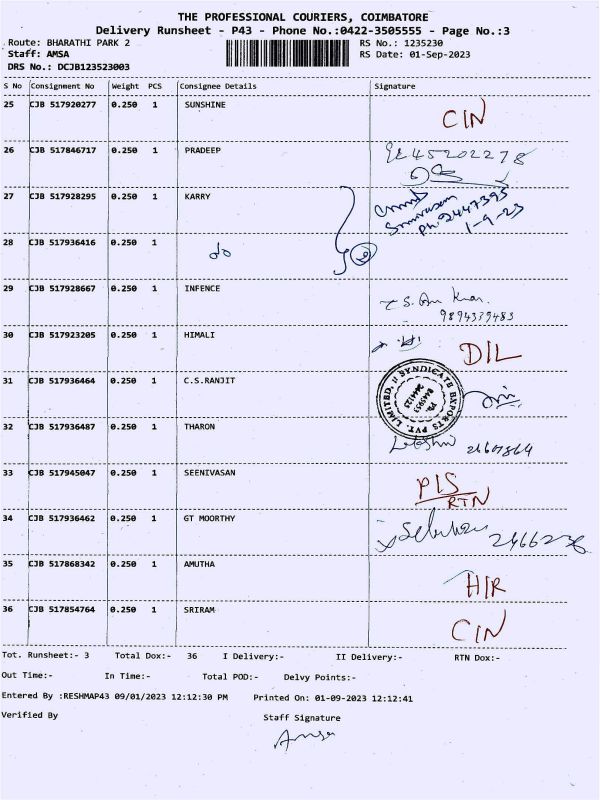 THE PROFESSIONAL COURIERS, COIMBATORE
Delivery Runsheet - P43 - Phone No.:0422-3505555 - Page No.:3
Route: BHARATHI PARK 2 RS No.: 1235230
Staff: AMSA RS Date: 01-Sep-2023
DRS No.: DCJB123523003
S No Consignment No Weight PCS Consignee Details Signature
25 CJB 517920277 0.250 1 SUNSHINE CIN
26 CJB 517846717 0.250 1 PRADEEP
27 CJB 517928295 0.250 1 KARRY
Srinivasan
Ph: 2447395
1-9-23
28 CJB 517936416 do
29 CJB 517928667 0.250 1 INFENCE
9894379483
30 CJB 517923205 0.250 1 HIMALI DIL
31 CJB 517936464 0.250 1 C.S.RANJIT
SYNDICATE EXPORTS PVT. LIMITED
32 CJB 517936487 0.250 1 THARON
33 CJB 517945047 0.250 1 SEENIVASAN PIS
RTN
34 CJB 517936462 0.250 1 GT MOORTHY
35 CJB 517868342 0.250 1 AMUTHA H/R
36 CJB 517854764 0.250 1 SRIRAM CIN
Tot. Runsheet:- 3 Total Dox:- 36 I Delivery:- II Delivery:- RTN Dox:-
Out Time:- In Time:- Total POD:- Delvy Points:-
Entered By :RESHMAP43 09/01/2023 12:12:30 PM Printed On: 01-09-2023 12:12:41
Verified By Staff Signature
Amsa